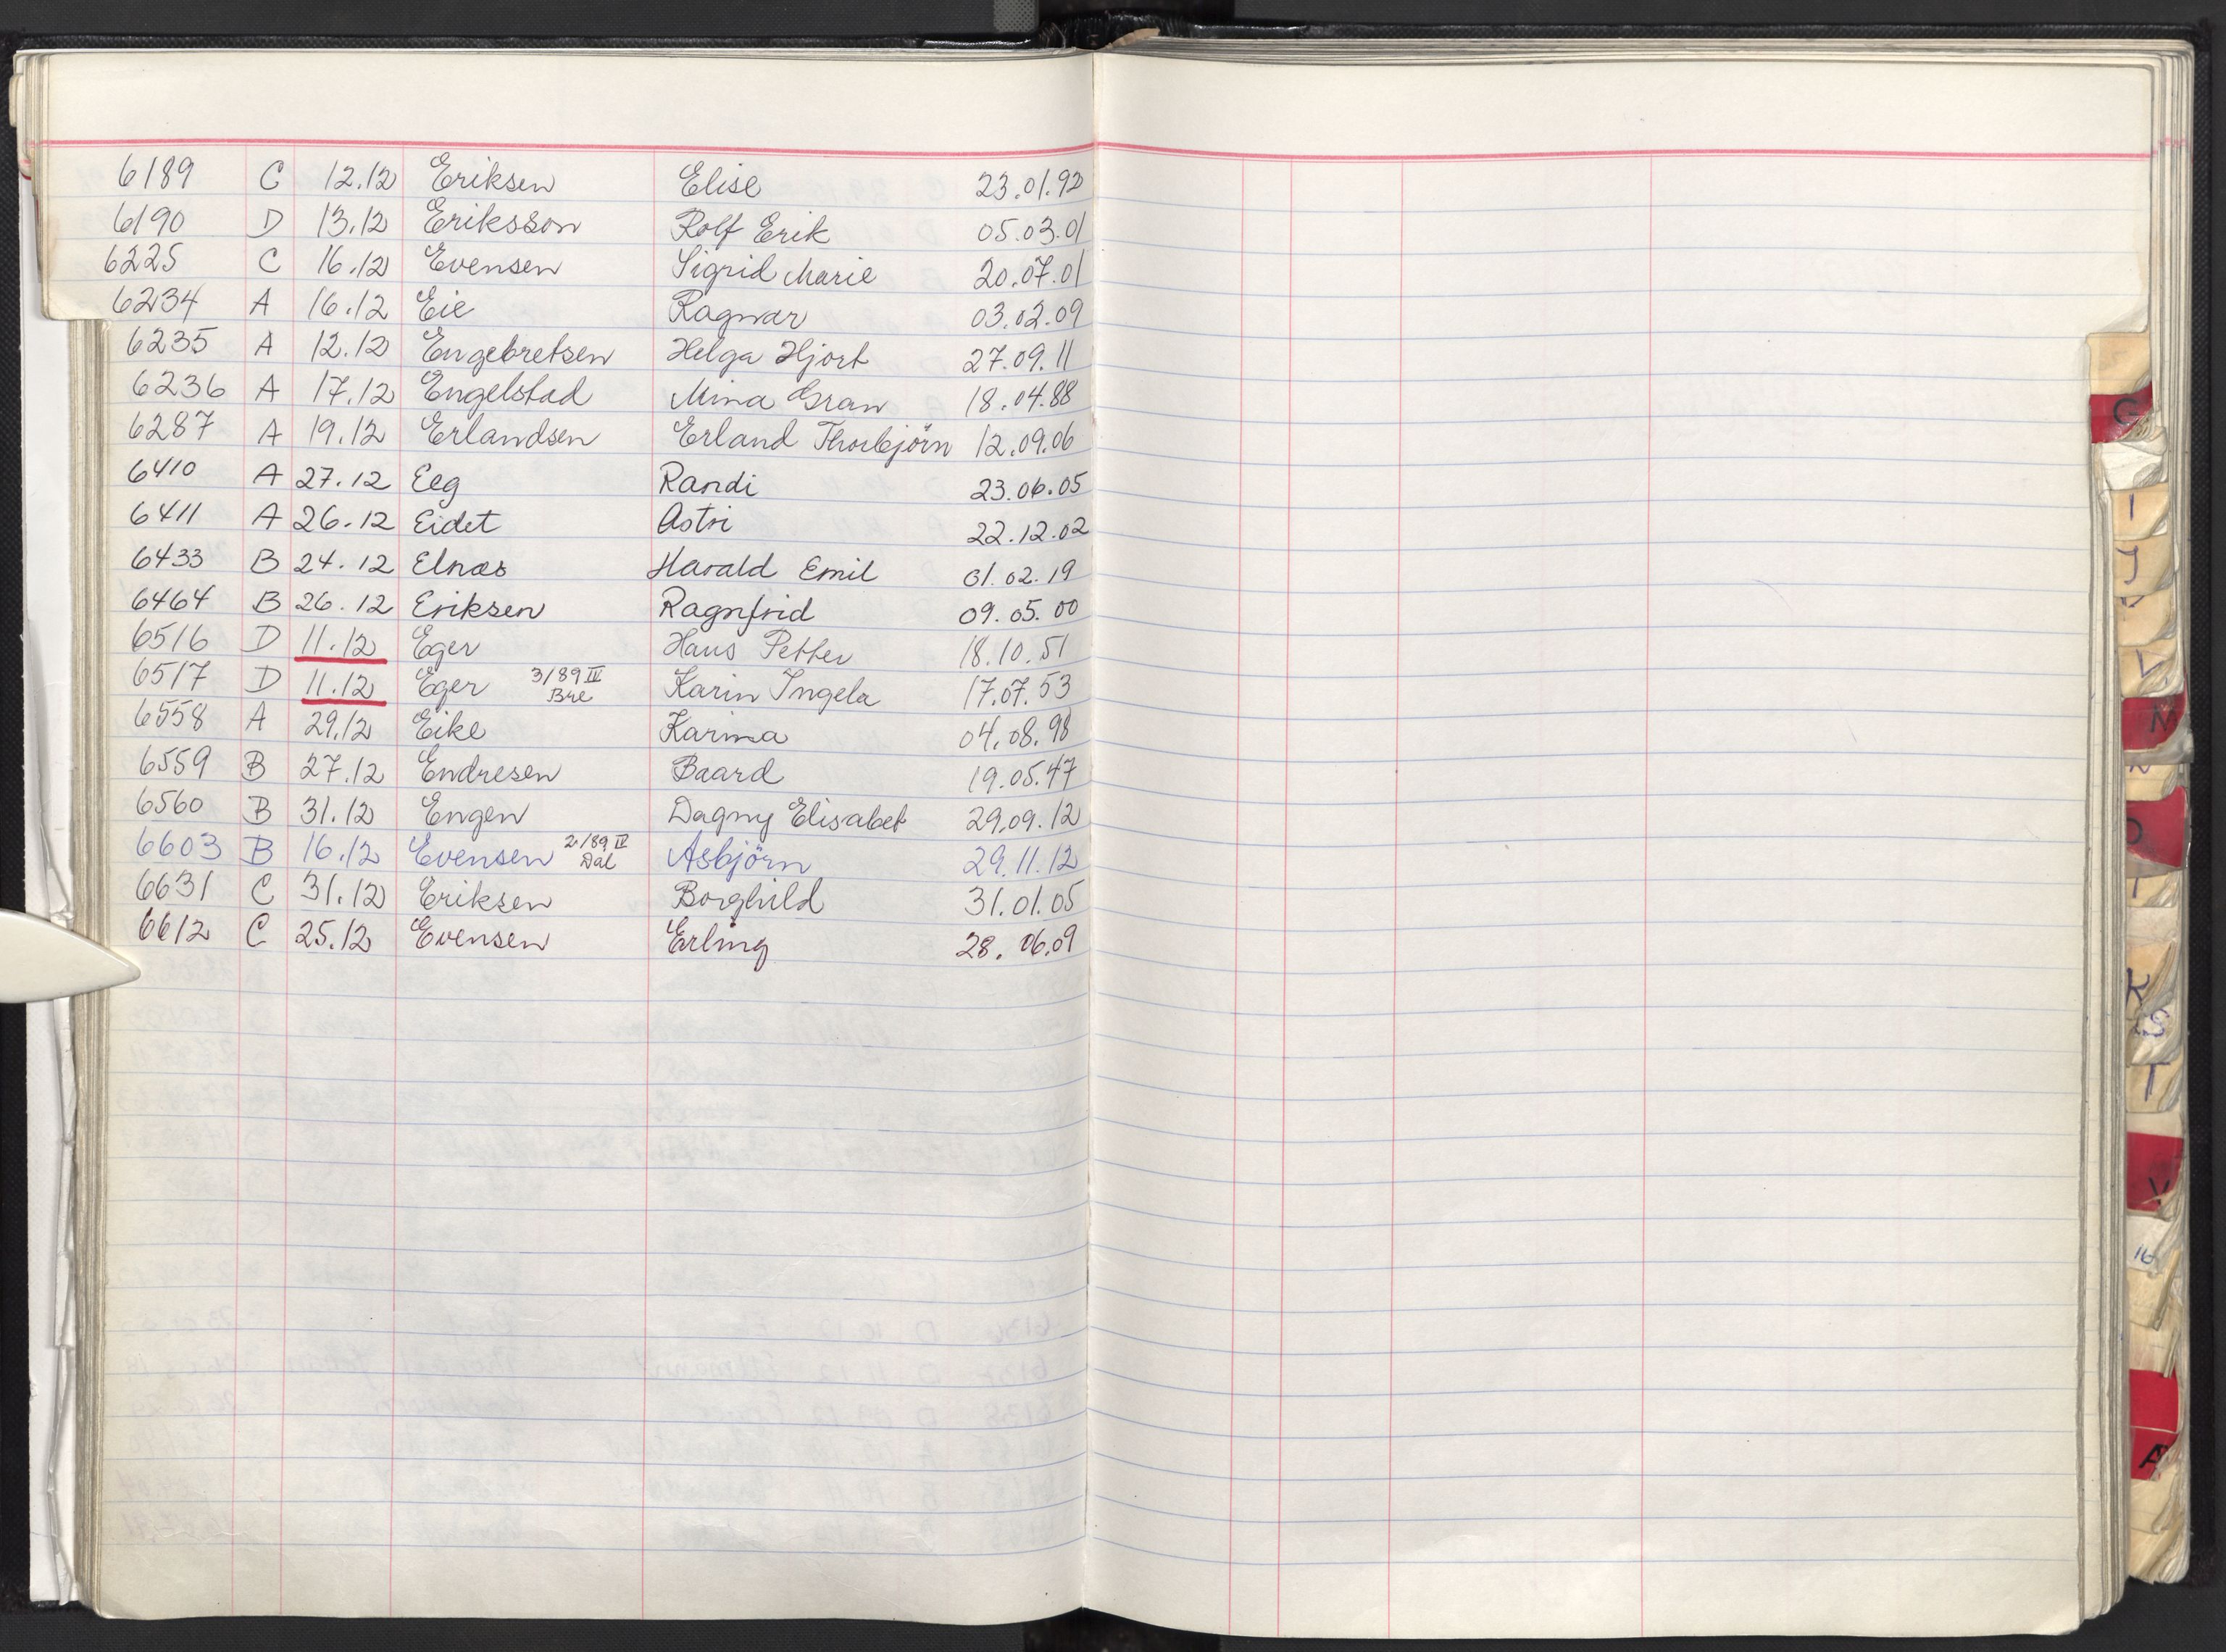 6189 C 12.12 Eriksen Elise 23.01.92
6190 D 13.12 Eriksson Rolf Erik 05.03.01
6225 C 16.12 Evensen Sigrid Marie 20.07.01
6234 A 16.12 Eie Ragnar 03.02.09
6235 A 12.12 Engebretsen Helga Hjort 27.09.11
6236 A 17.12 Engelstad Mina Gran 18.04.88
6287 A 19.12 Erlandsen Erland Thorbjörn 12.09.06
6410 A 27.12 Eeg Randi 23.06.05
6411 A 26.12 Eidet Astri 22.12.02
6433 B 24.12 Elnæs Harald Emil 01.02.19
6464 B 26.12 Eriksen Ragnfrid 09.05.00
6516 D 11.12 Eger Hans Petter 18.10.51
6517 D 11.12 Eger 3/89 IV Bre Karin Ingela 17.07.53
6558 A 29.12 Eike Karina 04.08.98
6559 B 27.12 Endresen Baard 19.05.47
6560 B 31.12 Engen Dagny Elisabet 29.09.12
6603 B 16.12 Evensen 2/89 IV Dal Asbjörn 29.11.12
6631 C 31.12 Eriksen Borghild 31.01.05
6612 C 25.12 Evensen Erling 28.06.09
G
I
J
M
K
S
T
V
16